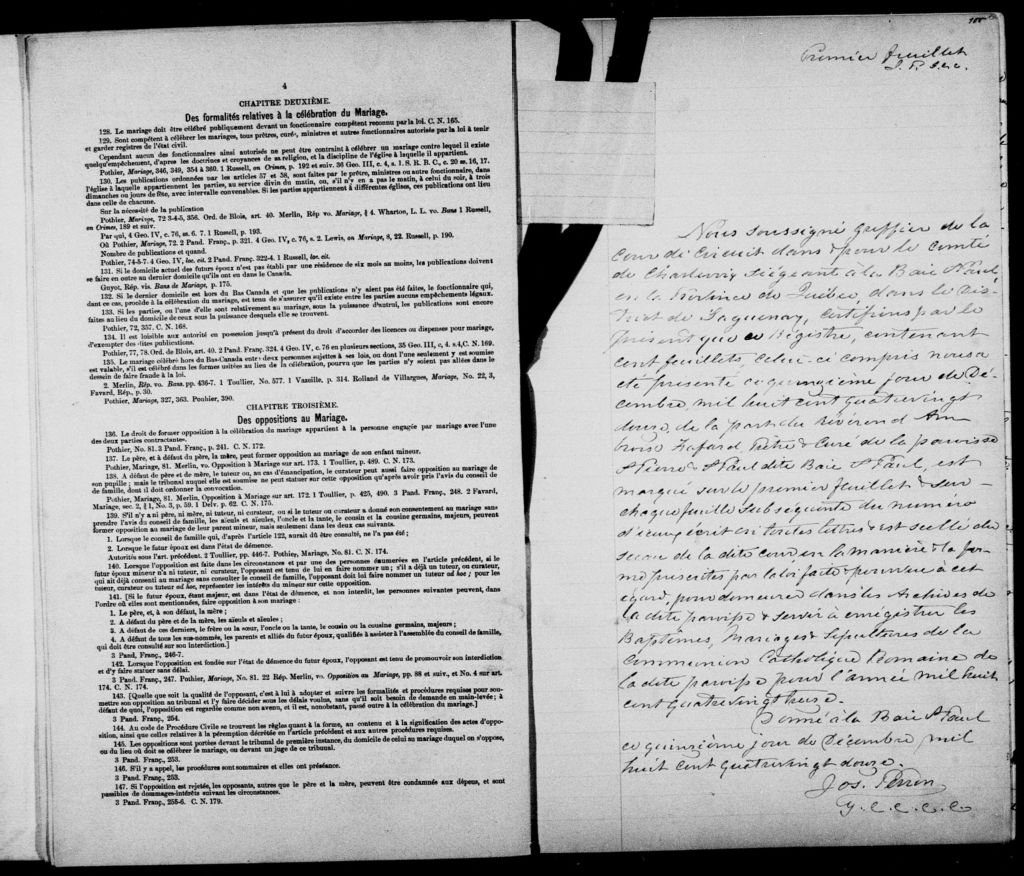 4
CHAPITRE DEUXIÈME.
Des formalités relatives à la célébration du Mariage.
128. Le mariage doit être célébré publiquement devant un fonctionnaire compétent reconnu par la loi. C. N. 165.
129. Sont compétent à célébrer les mariages, tous prêtres, curés, ministres et autres fonctionnaires autorisés par la loi à tenir
et garder registres de l'état civil.
Cependant aucun des fonctionnaires ainsi autorisés ne peut être contraint à célébrer un mariage contre lequel il existe
quelqu'empêchement, d'après les doctrines et croyances de sa religion, et la discipline de l'église à laquelle il appartient.
Pothier, Mariage, 346, 349, 354 à 360. 1 Russell, on Crimes, p. 192 et suiv. 36 Geo. III, c. 4, s. 1. S. R. B. C., c. 20 ss. 16, 17.
130. Les publications ordonnées par les articles 57 et 58, sont faites par le prêtre, ministre ou autre fonctionnaire, dans
l'église à laquelle appartiennent les parties, au service divin du matin, ou, s'il n'y en a pas le matin, à celui du soir, à trois
dimanches ou jours de fête, avec intervalle convenables. Si les parties appartiennent à différentes églises, ces publications ont lieu
dans celle de chacune.
Sur la nécessité de la publication
Pothier, Mariage, 72 3-4-5, 356. Ord. de Blois, art. 40. Merlin, Rép vo. Mariage, § 4. Wharton, L. L. vo. Bans 1 Russell,
on Crimes, 189 et suiv.
Par qui, 4 Geo. IV, c. 76, ss. 6. 7. 1 Russell, p. 193.
Où Pothier, Mariage, 72. 2 Pand. Franç. p. 321. 4 Geo. IV, c. 76, s. 2. Lewis, on Mariage, 8, 22. Russell, p. 190.
Nombre de publications et quand.
Pothier, 74-5-7. 4 Geo. IV, loc. cit. 2 Pand. Franç. 322-4. 1 Russell, loc. cit.
131. Si le domicile actuel des futurs époux n'est pas établi par une résidence de six mois au moins, les publications doivent
se faire en outre au dernier domicile qu'ils ont en dans le Canada.
Guyot, Rép. vis. Bans de Mariage, p. 175.
132. Si le dernier domicile est hors du Bas Canada et que les publications n'y aient pas été faites, le fonctionnaire qui,
dans ce cas, procède à la célébration du mariage, est tenu de s'assurer qu'il existe entre les parties aucuns empêchements légaux.
133. Si les parties, on l'une d'elle sont relativement au mariage, sous la puissance d'autrui, les publications sont encore
faites au lieu du domicile de ceux sous la puissance desquels elle se trouvent.
Pothier, 72, 357. C. N. 168.
134. Il est loisible aux autorité en possession jusqu'à présent du droit d'accorder des licences ou dispenses pour mariage,
d'exempter des dites publications.
Pothier, 77, 78. Ord. de Blois, art. 40. 2 Pand. Franç. 324. 4 Geo. IV, c. 76 en plusieurs sections, 35 Geo. III, c. 4. s. 4, C. N. 169.
135. Le mariage célébré hors du Bas-Canada entre deux personnes sujettes à ses lois, ou dont l'une seulement y est soumise
est valable, s'il est célébré dans les formes usitées au lieu de la célébration, pourvu que les parties n'y soient pas allées dans le
dessein de faire fraude à la loi.
2. Merlin, Rép. vo. Bans. pp. 436-7. 1 Toullier, No. 577. 1 Vazeille, p. 314. Rolland de Villargues, Mariage, No. 22, 3,
Favard, Rép., p. 30.
Pothier, Mariage, 327, 363. Pothier, 390.
CHAPITRE TROISIÈME.
Des oppositions au Mariage.
136. Le droit de former opposition à la célébration du mariage appartient à la personne engagée par mariage avec l'une
des deux parties contractantes.
Pothier, No. 81. 3 Pand. Franç., p. 241. C. N. 172.
137. Le père, et à défaut du père, la mère, peut former opposition au mariage de son enfant mineur.
Pothier, Mariage, 81. Merlin, vo. Opposition à Mariage sur art. 173. 1 Toullier, p. 489. C. N. 173.
138. A défaut de père et de mère, le tuteur ou, au cas d'émancipation, le curateur peut aussi faire opposition au mariage de
son pupille; mais le tribunal auquel elle est soumise ne peut statuer sur cette opposition qu'après avoir pris l'avis du conseil
de famille, dont il doit ordonner la convocation.
Pothier, Mariage, 81. Merlin, Opposition à Mariage sur art. 172. 1 Toullier, p. 425, 490. 3 Pand. Franç., 248. 2 Favard,
Mariage, sec. 2, § 1, No. 3, p. 59. 1 Delv. p. 62. C. N. 175.
139. S'il n'y a ni père, ni mère, ni tuteur, ni curateur, ou si le tuteur ou curateur a donné son consentement au mariage sans
prendre l'avis du conseil de famille, les aïeuls et aïeules, l'oncle et la tante, le cousin et la cousine germaine, majeurs, peuvent
former opposition au mariage de leur parent mineur, mais seulement dans les deux cas suivants.
1. Lorsque le conseil de famille qui, d'après l'article 122, aurait dû être consulté, ne l'a pas été;
2. Lorsque le futur époux est dans l'état de démence.
Autorités sous l'art. précédent. 2 Toullier, pp. 446-7. Pothier, Mariage, No. 81. C. N. 174.
140. Lorsque l'opposition est faite dans les circonstances et par une des personnes énumérées en l'article précédent, si le
futur époux mineur n'a ni tuteur, ni curateur, l'opposant est tenu de lui en faire nommer un; s'il a déjà un tuteur, ou curateur,
qui ait déjà consenti au mariage sans consulter le conseil de famille, l'opposant doit lui faire nommer un tuteur ad hoc; pour les
tuteur, curateur ou tuteur ad hoc, représenter les intérêts du mineur sur cette opposition.
141. [Si le futur époux, étant majeur, est dans l'état de démence, et non interdit, les personnes suivantes peuvent, dans
l'ordre où elles sont mentionnées, faire opposition à son mariage:
1. Le père, et, à son défaut, la mère;
2. A défaut du père et de la mère, les aïeuls et aïeules;
3. A défaut de ces derniers, le frère ou la sœur, l'oncle ou la tante, le cousin ou la cousine germains, majeurs;
4. A défaut de tous les sus-nommés, les parents et alliés du futur époux, qualifiés à assister à l'assemblée du conseil de famille,
qui doit être consulté sur son interdiction.]
3 Pand, Franç., 246-7.
142. Lorsque l'opposition est fondée sur l'état de démence du futur époux, l'opposant est tenu de promouvoir son interdiction
et d'y faire statuer sans délai.
3 Pand. Franç., 247. Pothier, Mariage, No. 81. 22 Rép. Merlin, vo. Opposition au Mariage, pp. 88 et suiv., et No. 4 sur art.
174. C. N. 174.
143. [Quelle que soit la qualité de l'opposant, c'est à lui à adopter et suivre les formalités et procédures requises pour sou-
mettre son opposition au tribunal et l'y faire décider sous les délais voulus, sans qu'il soit besoin de demande en main-levée; à
défaut de quoi, l'opposition est regardée comme non avenu, et il est, nonobstant, passé outre à la célébration du mariage.]
3 Pand. Franç., 254.
144. Au code de Procédure Civile se trouvent les règles quant à la forme, au contenu et à la signification des actes d'oppo-
sition, ainsi que celles relatives à la péremption décrétée en l'article précédent et aux autres procédures requises.
145. Les oppositions sont portées devant le tribunal de première instance, du domicile de celui au mariage duquel on s'oppose,
ou du lieu où doit se célébrer le mariage, ou devant un juge de ce tribunal.
3 Pand. Franç., 253.
146. S'il y a appel, les procédures sont sommaires et elles ont préséance.
3 Pand. Franç., 253.
147. Si l'opposition est rejetée, les opposants, autres que le père et la mère, peuvent être condamnés aux dépens, et sont
passibles de dommages-intérêts suivant les circonstances.
3 Pand. Franç., 255-6. C. N. 179.
100
Premier feuillet
Nous soussigné greffier de la
Cour de Circuit dans & pour le comté
de Charlevoix Siégeante à la Baie St Paul
en la Province de Québec, dans le Dis-
trict de Saguenay, Certifions par le
présent que ce Régistre, contenant
cent feuillets, celui-ci compris nous a
été présenté ce quinzième jour de Dé-
cembre, mil huit cent quatrevingt
douze, de la part du Révérend Am-
broise Fafard Prêtre & Curé de la paroisse
St Pierre & St Paul dite Baie St Paul, est
marqué sur le premier feuillet & sur
chaque feuille subséquente du numéro
d'iceux écrit en toutes lettres & est scellé du
sceau de la dite cour en la manière & la for-
me prescrites par la loi faite & pourvue à cet
égard, pour demeurer dans les Archives de
la dite paroisse & servir à enrégistrer les
Baptêmes, Mariages & Sépultures de la
Communion Catholique Romaine de
la dite paroisse pour l'année mil huit
cent quatrevingt treize.
Donné à la Baie St Paul
ce quinzième jour de Décembre mil
huit cent quatrevingt douze.
Jos. Perron
g. c. c. c. c.